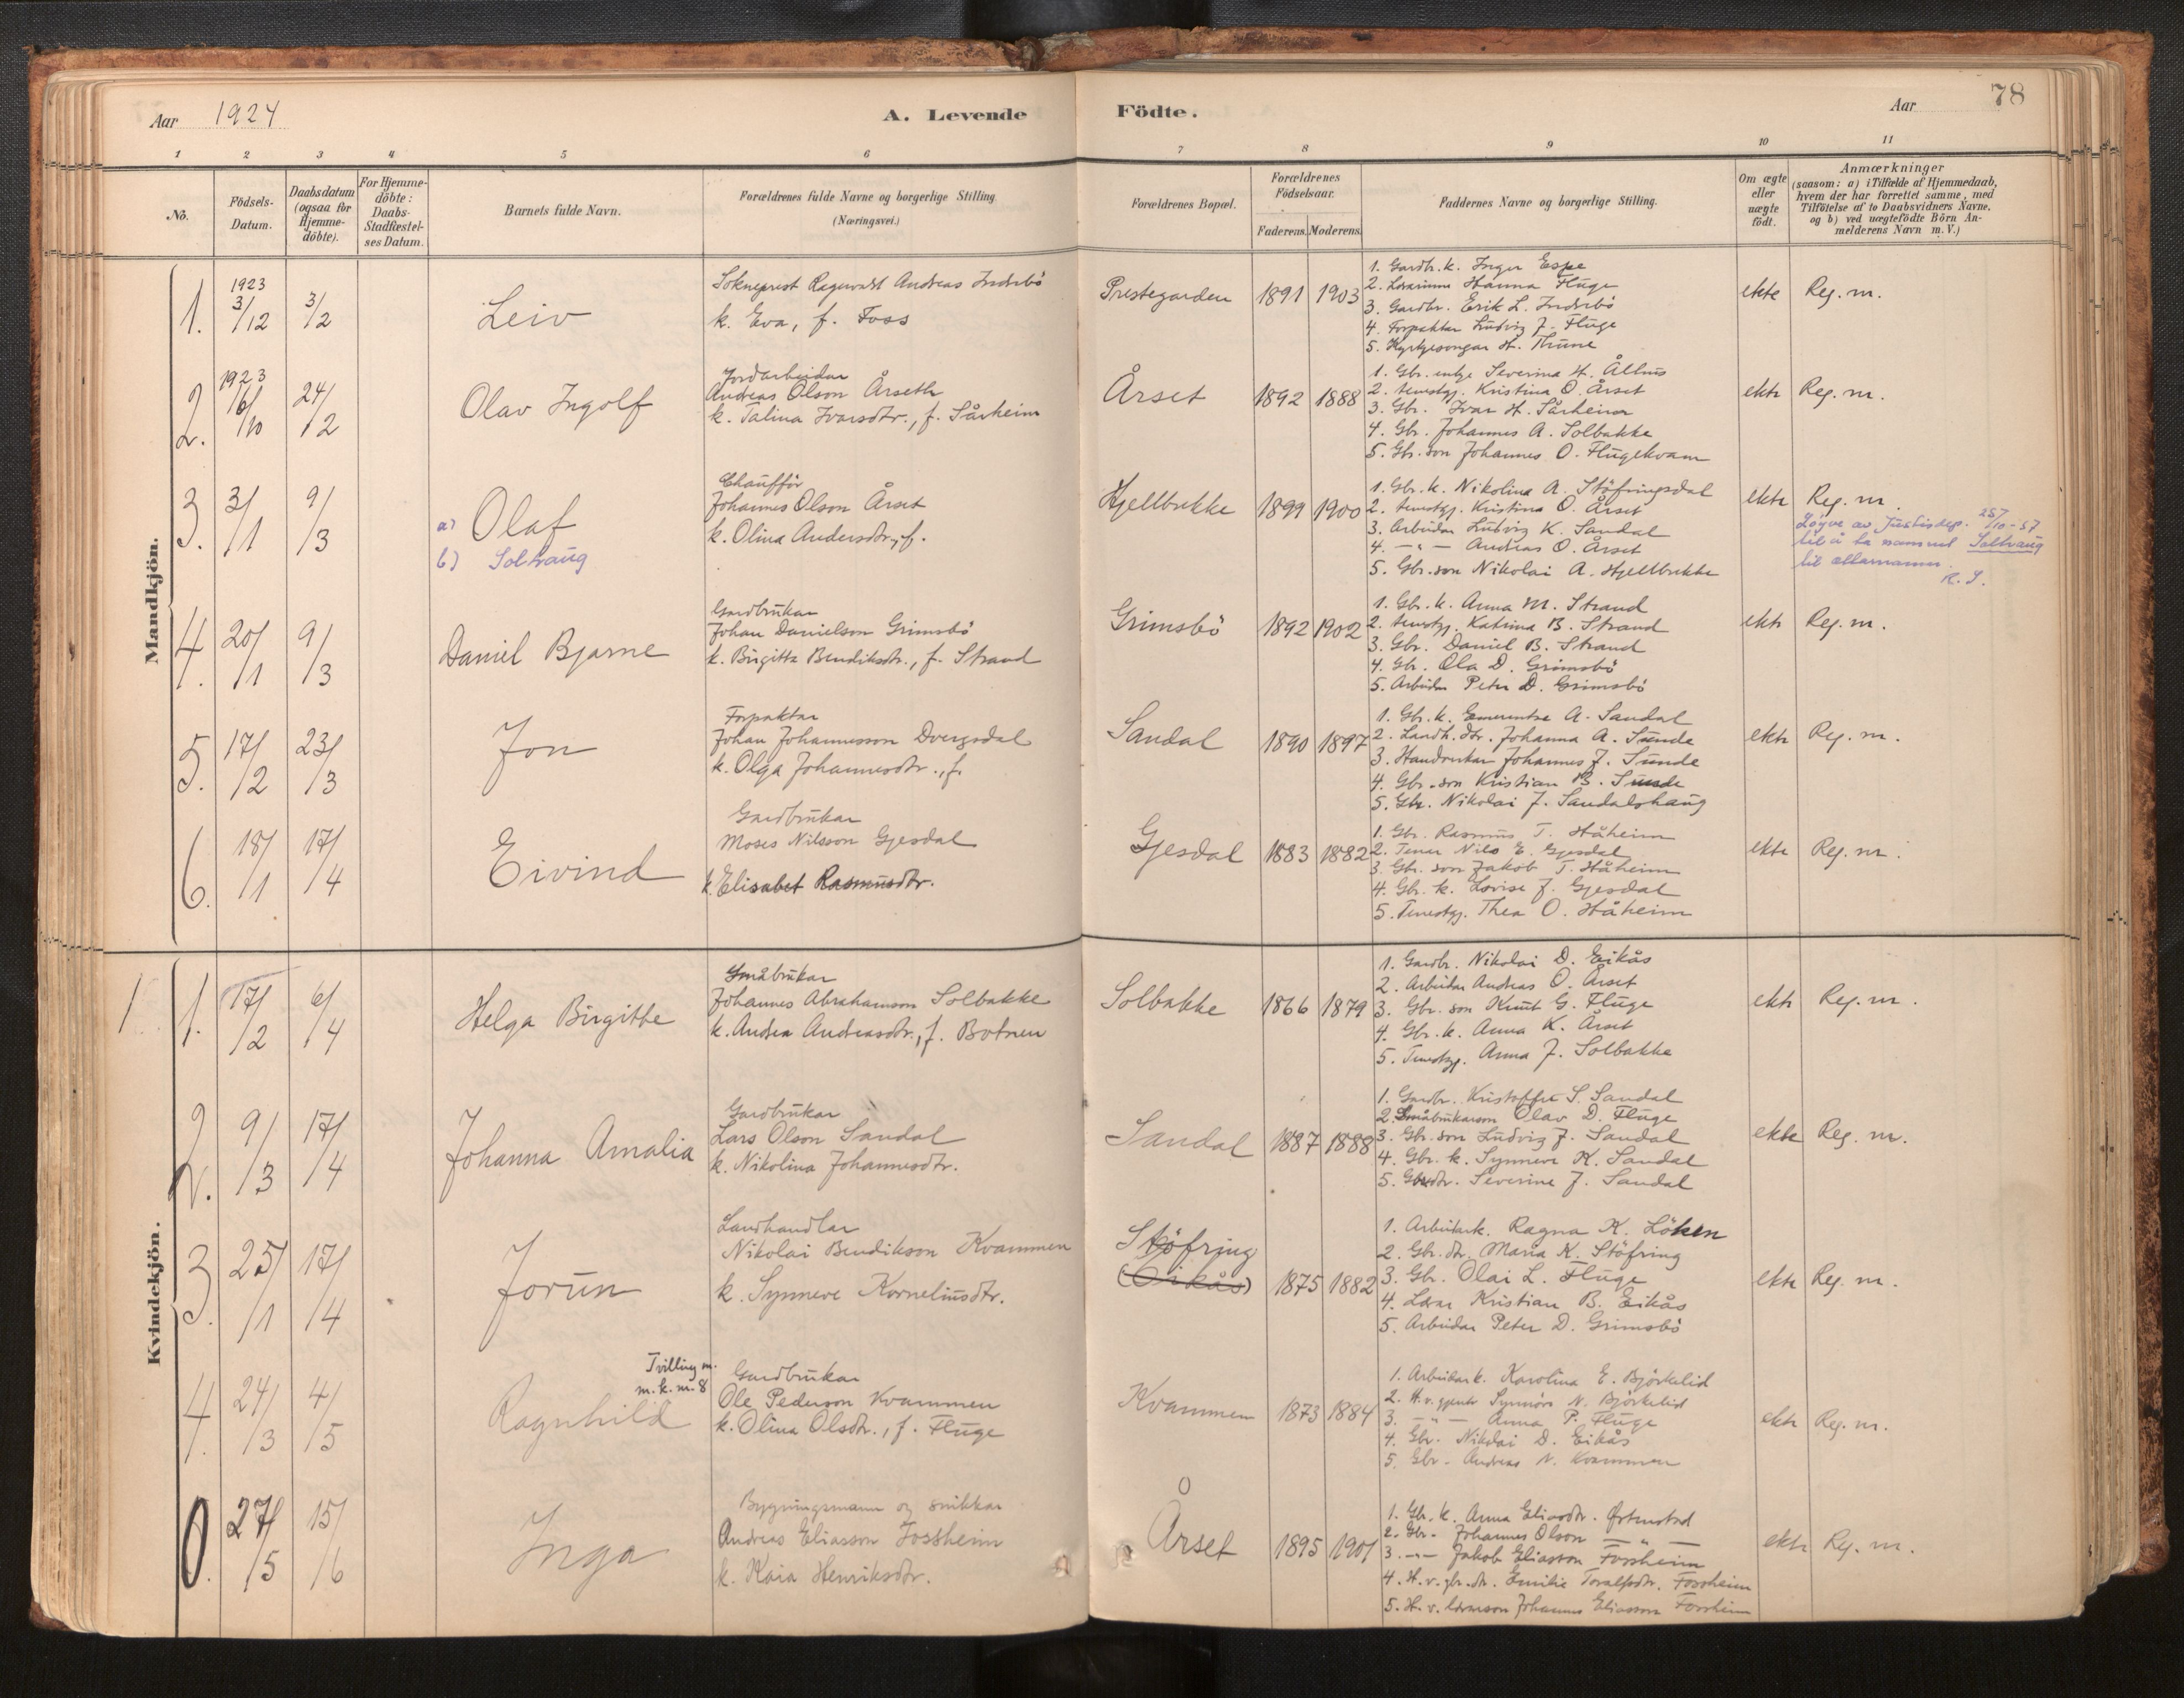 Aar 1924
A. Levende
Födte.
Aar
78
1 2 3 4 5 6 7 8 9 10 11
No.
Födsels-
Datum.
Daabsdatum
(ogsaa for
Hjemme-
döbte).
For Hjemme-
döbte:
Daabs-
Stadfæstel-
ses Datum.
Barnets fulde Navn.
Forældrenes fulde Navne og borgerlige Stilling
(Næringsvei.)
Forældrenes Bopæl.
Forældrenes
Födselsaar.
Faderens. Moderens.
Faddernes Navne og borgerlige Stilling.
Om ægte
eller
uægte
født.
Anmærkninger
(saasom: a) i Tilfælde af Hjemmedaab,
hvem der har forrettet samme, med
Tilföielse af to Daabsvidners Navne,
og b) ved uægtefödte Börn An-
melderens Navn m.V.)
Mandkjön.
1.
1923
3/12
3/2
Leiv
Sokneprest Ragnvald Andreas Indrebö
k. Eva, f. Foss
Prestegarden
1891 1903
1. Gardbr.k. Inger Espe
2. Lærarinne Hanna Fluge
3. Gardbr. Erik L. Indrebö
4. Forpaktar Ludvig J. Fluge
5. Kyrkjesongar H. Thune
ekte
Reg. m.
2.
1923
16/10
24/2
Olav Ingolf
Jordarbeidar
Andreas Olson Årseth
k. Talina Ivarsdtr., f. Sårheim
Årset
1892 1888
1. Gbr. enkje Severina H. Ålhus
2. tenestgj. Kristina O. Årset
3. Gbr. Ivar H. Sårheim
4. Gbr. Johannes A. Solbakke
5. Gbr. son Johannes O. Flugekvam
ekte
Reg. m.
3.
3/1
9/3
a) Olaf
b) Solhaug
Chaufför
Johannes Olson Årset
k. Olina Andersdtr., f.
Hjellbrekke
1899 1900
1. Gbr. k. Nikolina A. Stöfringsdal
2. tenestgj. Kristina O. Årset
3. Arbeidar Ludvig K. Sandal
4. —"— Andreas O. Årset
5. Gbr. son Nikolai A. Hjellbrekke
ekte
Reg. m.
Löyve av Justisdep. 25/10-57
til å ta namnet Solhaug
til etternamn.
R. S.
4.
20/1
9/3
Daniel Bjarne
Gardbrukar
Johan Danielson Grimsbö
k. Birgitta Bendiksdtr., f. Strand
Grimsbö
1892 1902
1. Gbr. k. Anna M. Strand
2. tenestgj. Katrina B. Strand
3. Gbr. Daniel B. Strand
4. Gbr. Ola D. Grimsbö
5. Arbeidar Peter D. Grimsbö
ekte
Reg. m.
5.
17/2
23/3
Jon
Forpaktar
Johan Johannesson Dvergsdal
k. Olga Johannesdtr., f.
Sandal
1890 1897
1. Gbr. k. Emerentse A. Sandal
2. Landh. dtr. Johanna A. Sunde
3. Handverkar Johannes J. Sunde
4. Gbr. son Kristian B. Sunde
5. Gbr. Nikolai J. Sandalshaug
ekte
Reg. m.
6.
18/1
17/4
Eivind
Gardbrukar
Moses Nilsson Gjesdal
k. Elisabet Rasmusdtr.
Gjesdal
1883 1882
1. Gbr. Rasmus T. Håheim
2. Tener Nils E. Gjesdal
3. Gbr. son Jakob T. Håheim
4. Gbr. k. Lovise J. Gjesdal
5. Tenestgj. Thea O. Håheim
ekte
Reg. m.
Kvindekjön.
1
1.
17/2
6/4
Helga Birgitte
Småbrukar
Johannes Abrahamson Solbakke
k. Andrea Andreasdtr., f. Botnen
Solbakke
1866 1879
1. Gardbr. Nikolai D. Eikås
2. Arbeidar Andreas O. Årset
3. Gbr. son Knut G. Fluge
4. Gbr. k. Anna K. Årset
5. Tenestgj. Anna J. Solbakke
ekte
Reg. m.
2.
9/3
17/4
Johanna Amalia
Gardbrukar
Lars Olson Sandal
k. Nikolina Johannesdtr.
Sandal
1887 1888
1. Gardbr. Kristoffer S. Sandal
2. Småbrukarson Olav D. Fluge
3. Gbr. son Ludvig J. Sandal
4. Gbr. k. Synneve K. Sandal
5. Gbr.dtr. Severine J. Sandal
ekte
Reg. m.
3.
25/1
17/4
Jorun
Landhandlar
Nikolai Bendikson Kvammen
k. Synneve Korneliusdtr.
Stöfring
(Eikås)
1875 1882
1. Arbeidark. Ragna K. Löken
2. Gbr. dtr. Maria K. Stöfring
3. Gbr. Olai L. Fluge
4. Lærar Kristian B. Eikås
5. Arbeidar Peter D. Grimsbö
ekte
Reg. m.
4.
24/3
4/5
Tvilling m.
m. k. m. 8
Ragnhild
Gardbrukar
Ole Pederson Kvammen
k. Olina Olsdtr., f. Fluge
Kvammen
1873 1884
1. Arbeidark. Karolina E. Björkelid
2. H. v. gjente Synnöve N. Björkelid
3. —"— Anna P. Fluge
4. Gbr. Nikolai D. Eikås
5. Gbr. Andreas N. Kvammen
ekte
Reg. m.
0.
27/5
15/6
Inga
Bygningsmann og snikkar
Andreas Eliasson Fossheim
k. Kaia Henriksdtr.
Årset
1895 1901
1. Gbr. k. Anna Eliasdtr.
2. Gbr. Johannes Olson —"—
3. —"— Jakob Eliasson Fossheim
4. H. v. gbr. dtr. Emilie Toralfsdtr. Fossheim
5. H. v. lærarson Johannes Eliasson Fossheim
ekte
Reg. m.